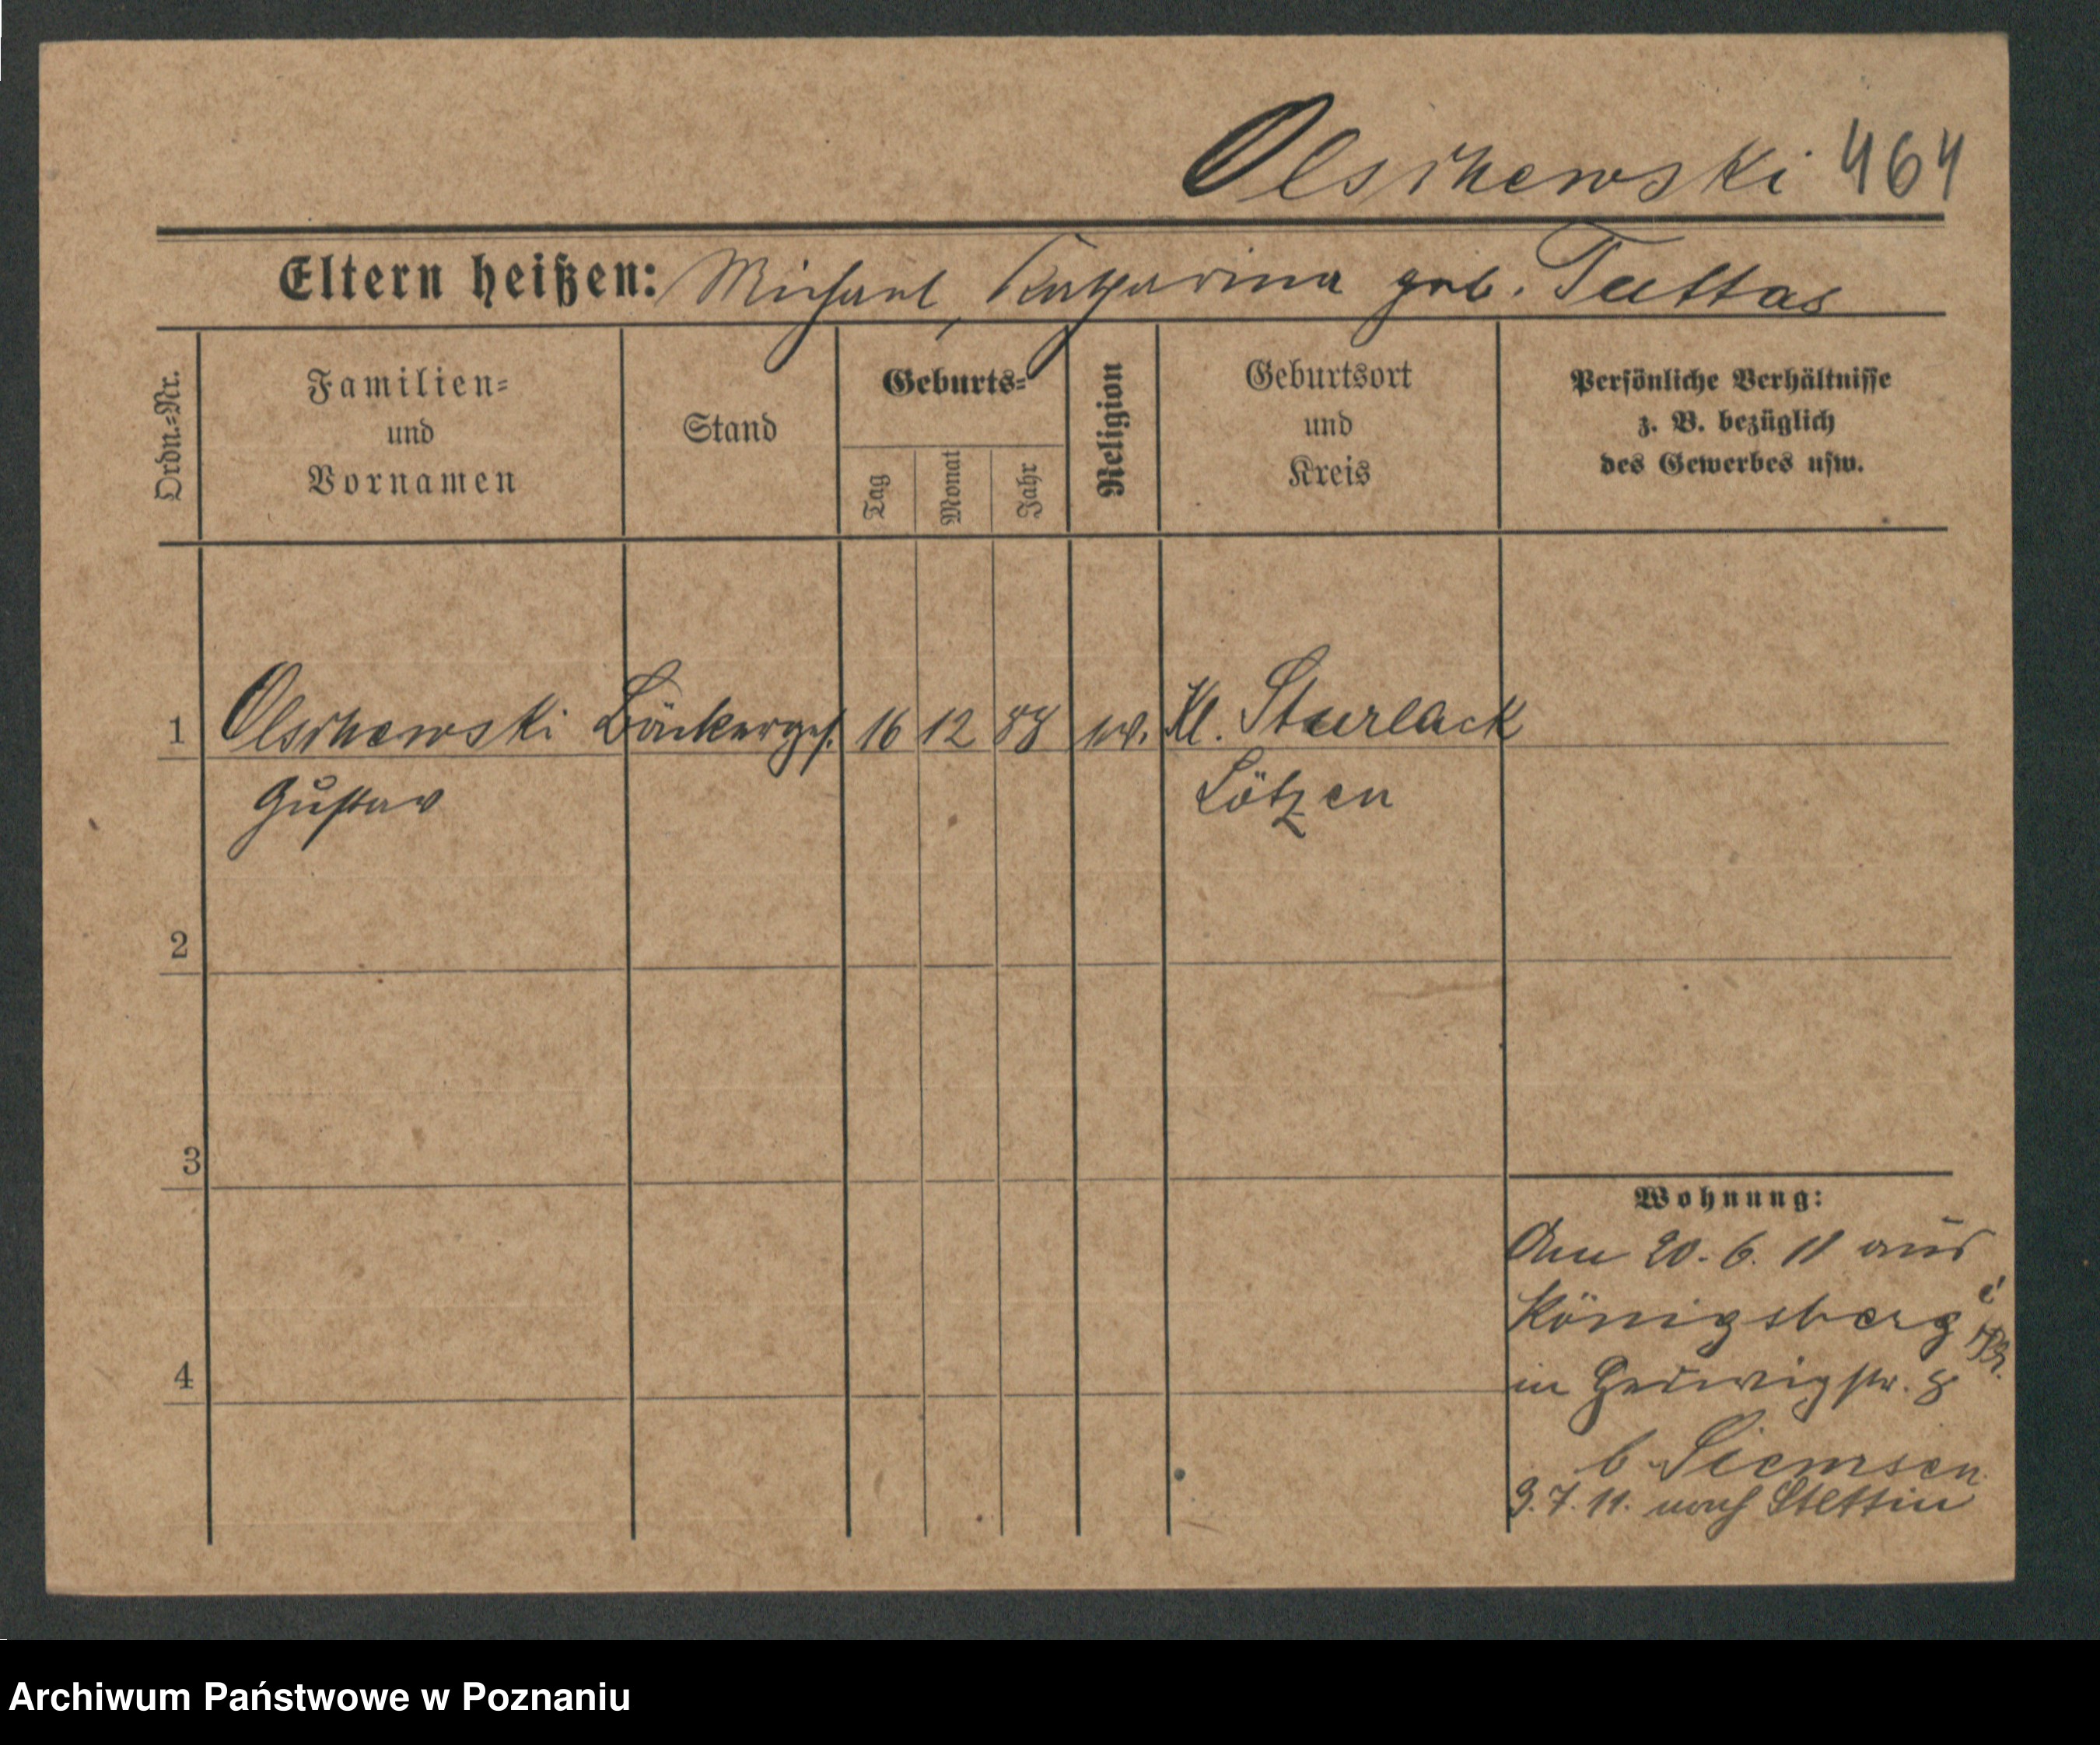 Olschewski 464
Eltern heißen: Michael, Katharina geb. Tuttas
Ordn.=Nr.
Familien=
und
Vornamen
Stand
Geburts=
Tag
Monat
Jahr
Religion
Geburtsort
und
Kreis
Persönliche Verhältnisse
z. B. bezüglich
des Gewerbes usw.
1 Olschewski Bäckerges. 16 12 88 ev. Kl. Sturlack
Gustav Lötzen
2
3
4
Wohnung:
Am 20. 6. 11 aus
Königsberg i/Pr.
in Hedwigstr. 8
b. Siemsen
3. 7. 11. nach Stettin
Archiwum Państwowe w Poznaniu